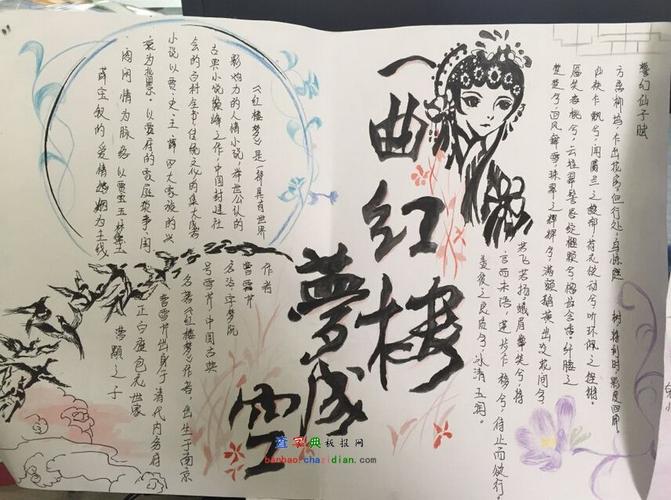 警幻仙子赋
方离柳坞，乍出花房。但行处，鸟惊庭树，将到时，影度回廊。
仙袂乍飘兮，闻麝兰之馥郁；荷衣欲动兮，听环佩之铿锵。
靥笑春桃兮，云堆翠髻；唇绽樱颗兮，榴齿含香。纤腰之
楚楚兮，回风舞雪；珠翠之辉辉兮，满额鹅黄。出没花间兮，
若飞若扬。蛾眉颦笑兮，将
言而未语；莲步乍移兮，待止而欲行。
美彼之良质兮，冰清玉润。
一曲红楼
梦成空
《红楼梦》是一部具有世界
影响力的人情小说，举世公认的
古典小说巅峰之作，中国封建社
会的百科全书，传统文化的集大成者
小说以贾、史、王、薛四大家族的兴
衰为背景，以贾府的家庭琐事、闺
阁闲情为脉络，以贾宝玉、林黛玉、
薛宝钗的爱情婚姻为主线
作者
曹雪芹
名沾字梦阮
号雪芹，中国古典
名著《红楼梦》作者，出生于南京
曹雪芹出身于清代内务府
正白旗包衣世家
曹颙之子
查字典板报网
banbao.chazidian.com